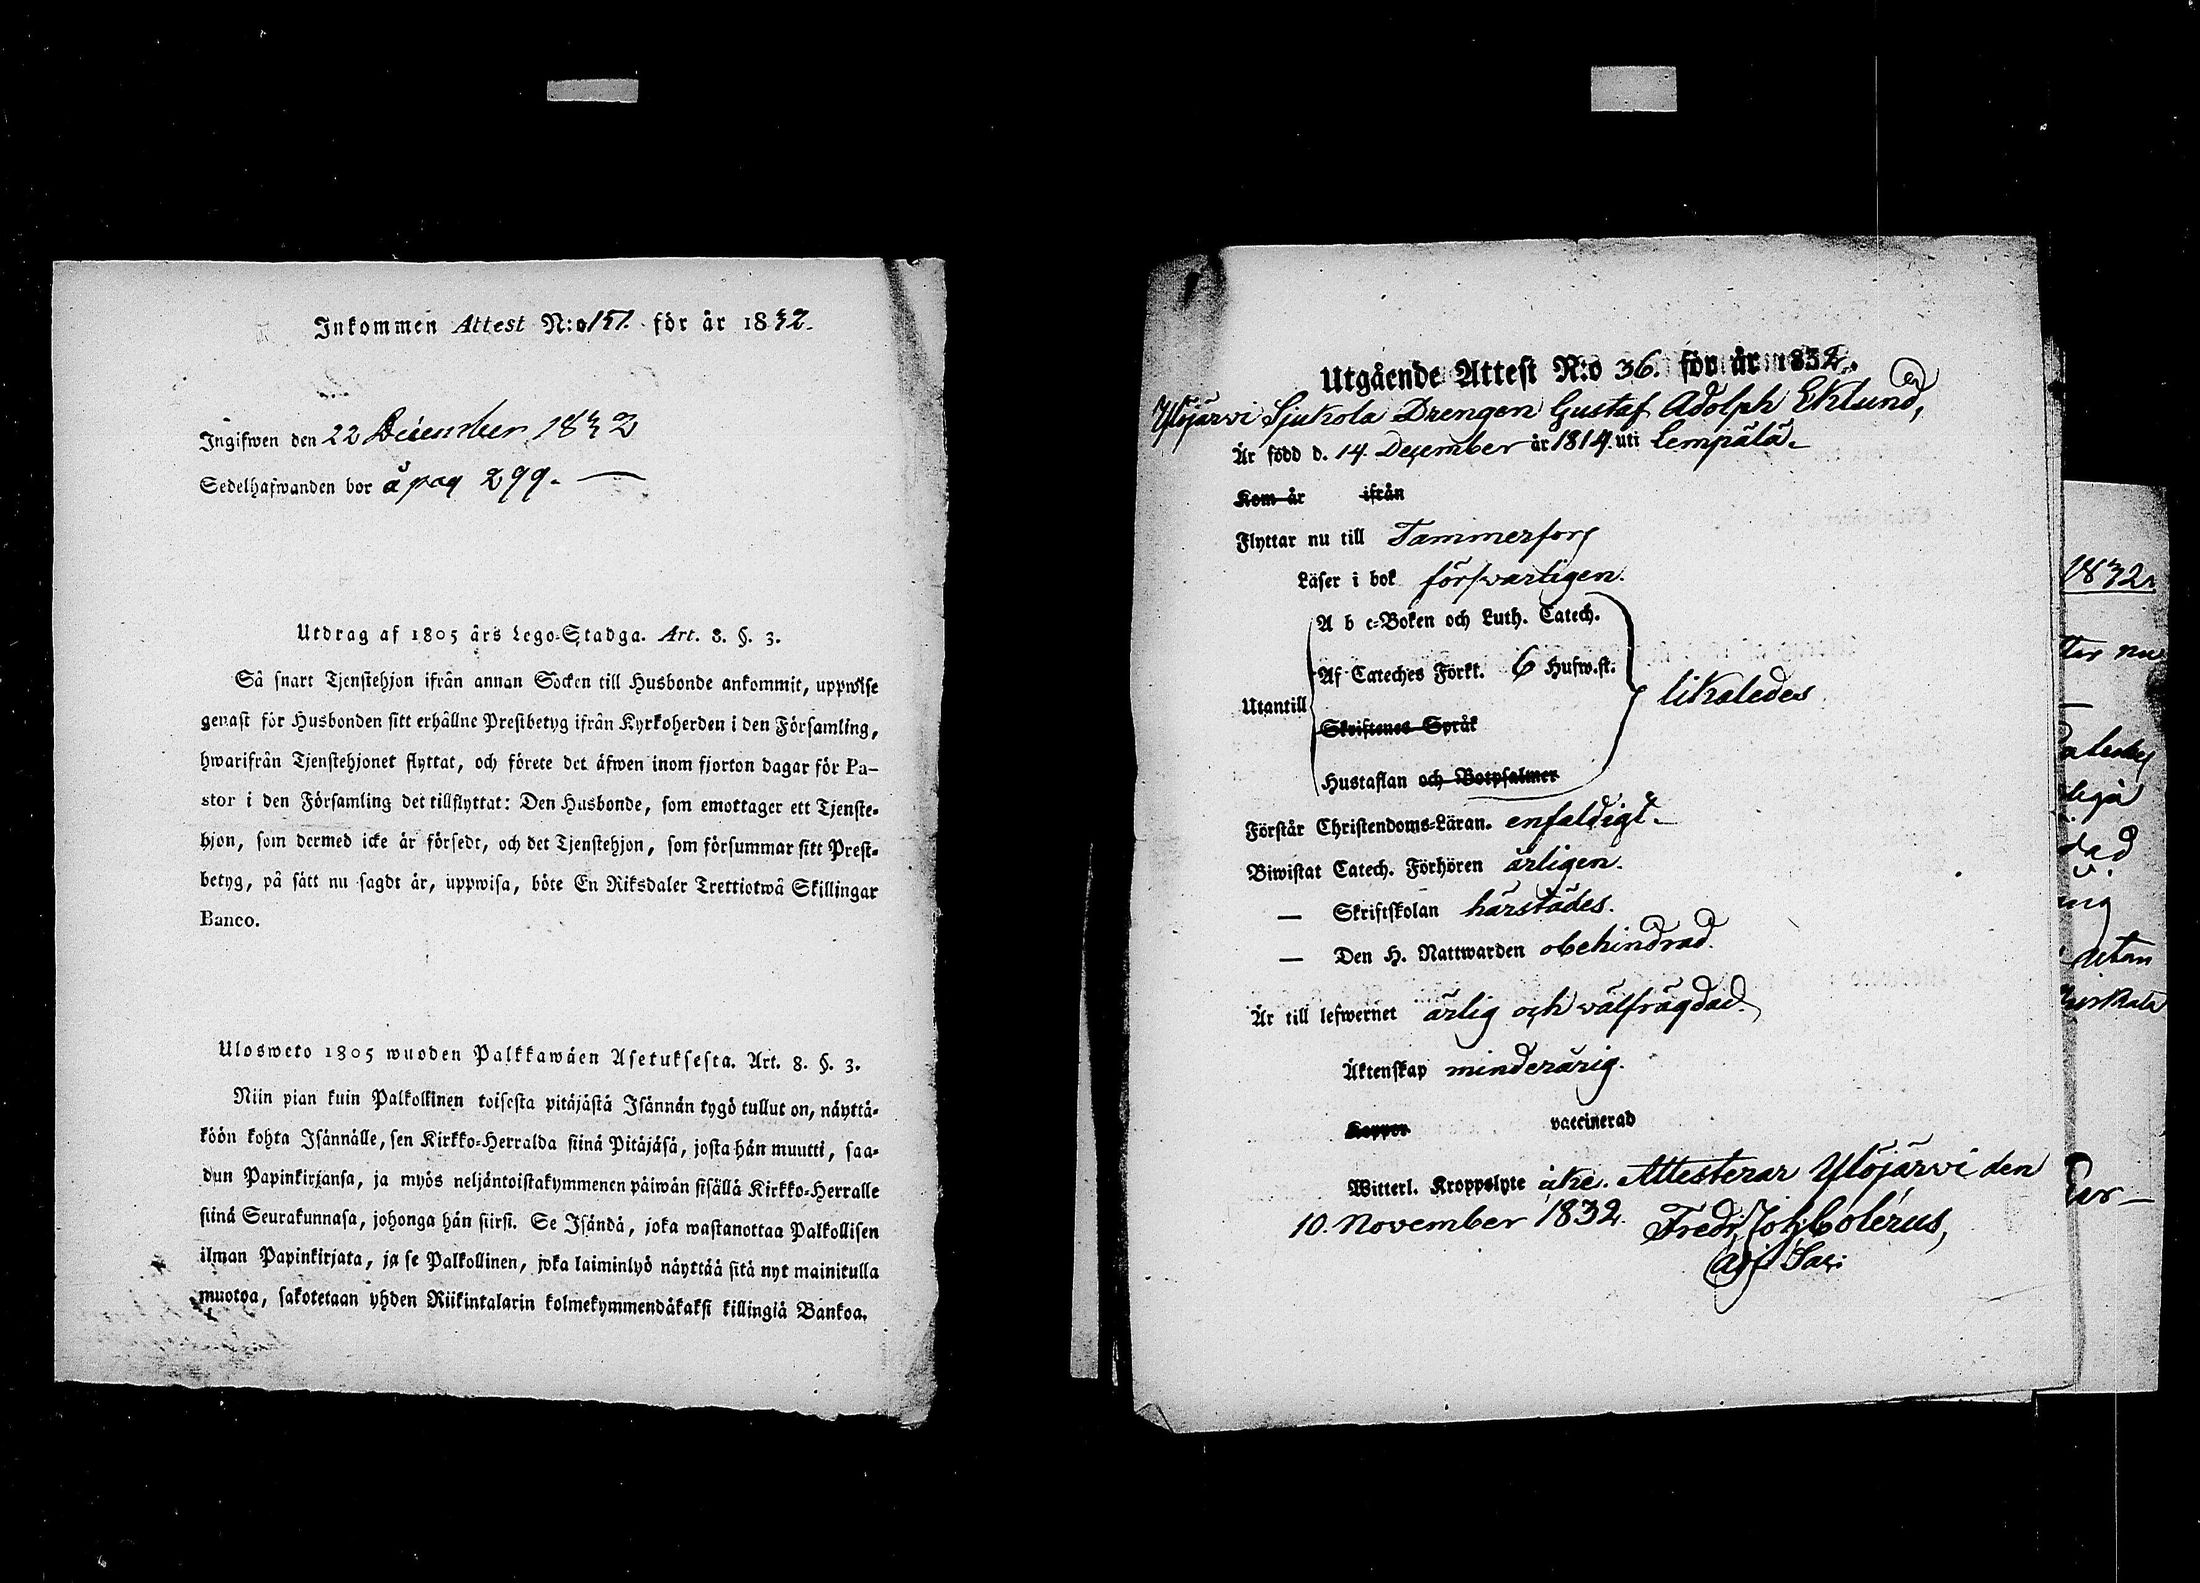 Inkommen Attest N:o 151. för år 1832.
Ingifwen den 22 December 1832
Sedelhafwanden bor å pag 299.
Utdrag af 1805 års Lego-Stadga. Art. 8. §. 3.
Så snart Tjenstehjon ifrån annan Socken till Husbonde ankommit, uppwise
genast för Husbonden sitt erhållne Prestbetyg ifrån Kyrkoherden i den Församling,
hwarifrån Tjenstehjonet flyttat, och förete det äfwen inom fjorton dagar för Pa-
stor i den Församling det tillflyttat: Den Husbonde, som emottager ett Tjenste-
hjon, som dermed icke är försedt, och det Tjenstehjon, som försummar sitt Prest-
betyg, på sätt nu sagdt är, uppwisa, böte En Riksdaler Trettiotwå Skillingar
Banco.
Ulosweto 1805 wuoden Palkkawäen Asetuksesta. Art. 8. §. 3.
Niin pian kuin Palkollinen toisesta pitäjästä Isännän tygö tullut on, näyttä-
köön kohta Isännälle, sen Kirkko-Herralda siinä Pitäjäsä, josta hän muutti, saa-
dun Papinkirjansa, ja myös neljäntoistakymmenen päiwän sisällä Kirkko-Herralle
siinä Seurakunnasa, johonga hän siirsi. Se Isändä, joka wastanottaa Palkollisen
ilman Papinkirjata, ja se Palkollinen, joka laiminlyö näyttää sitä nyt mainitulla
muotoa, sakotetaan yhden Riikintalarin kolmekymmendäkaksi killingiä Bankoa.
Utgående Attest N:o 36. för år 1832.
Ylöjärvi Sjukola Drengen Gustaf Adolph Eklund,
Är född d. 14. December år 1814 uti Lempälä.
Kom år ifrån
Flyttar nu till Tammerfors
Läser i bok försvarligen.
A b c-Boken och Luth. Catech.
Af Cateches Förkl. 6 Hufw.st.
Utantill likaledes
Skriftenes Språk
Hustaflan och Botpsalmer
Förstår Christendoms-Läran. enfaldigt.
Biwistat Catech. Förhören årligen.
— Skriftskolan härstädes.
— Den H. Nattwarden obehindrad.
Är till lefwernet ärlig och välfrägdad.
Äktenskap minderårig.
Koppor vaccinerad
Witterl. Kroppslyte icke. Attesterar Ylöjärvi den
10. November 1832. Fredr. Joh. Colérus,
1832.